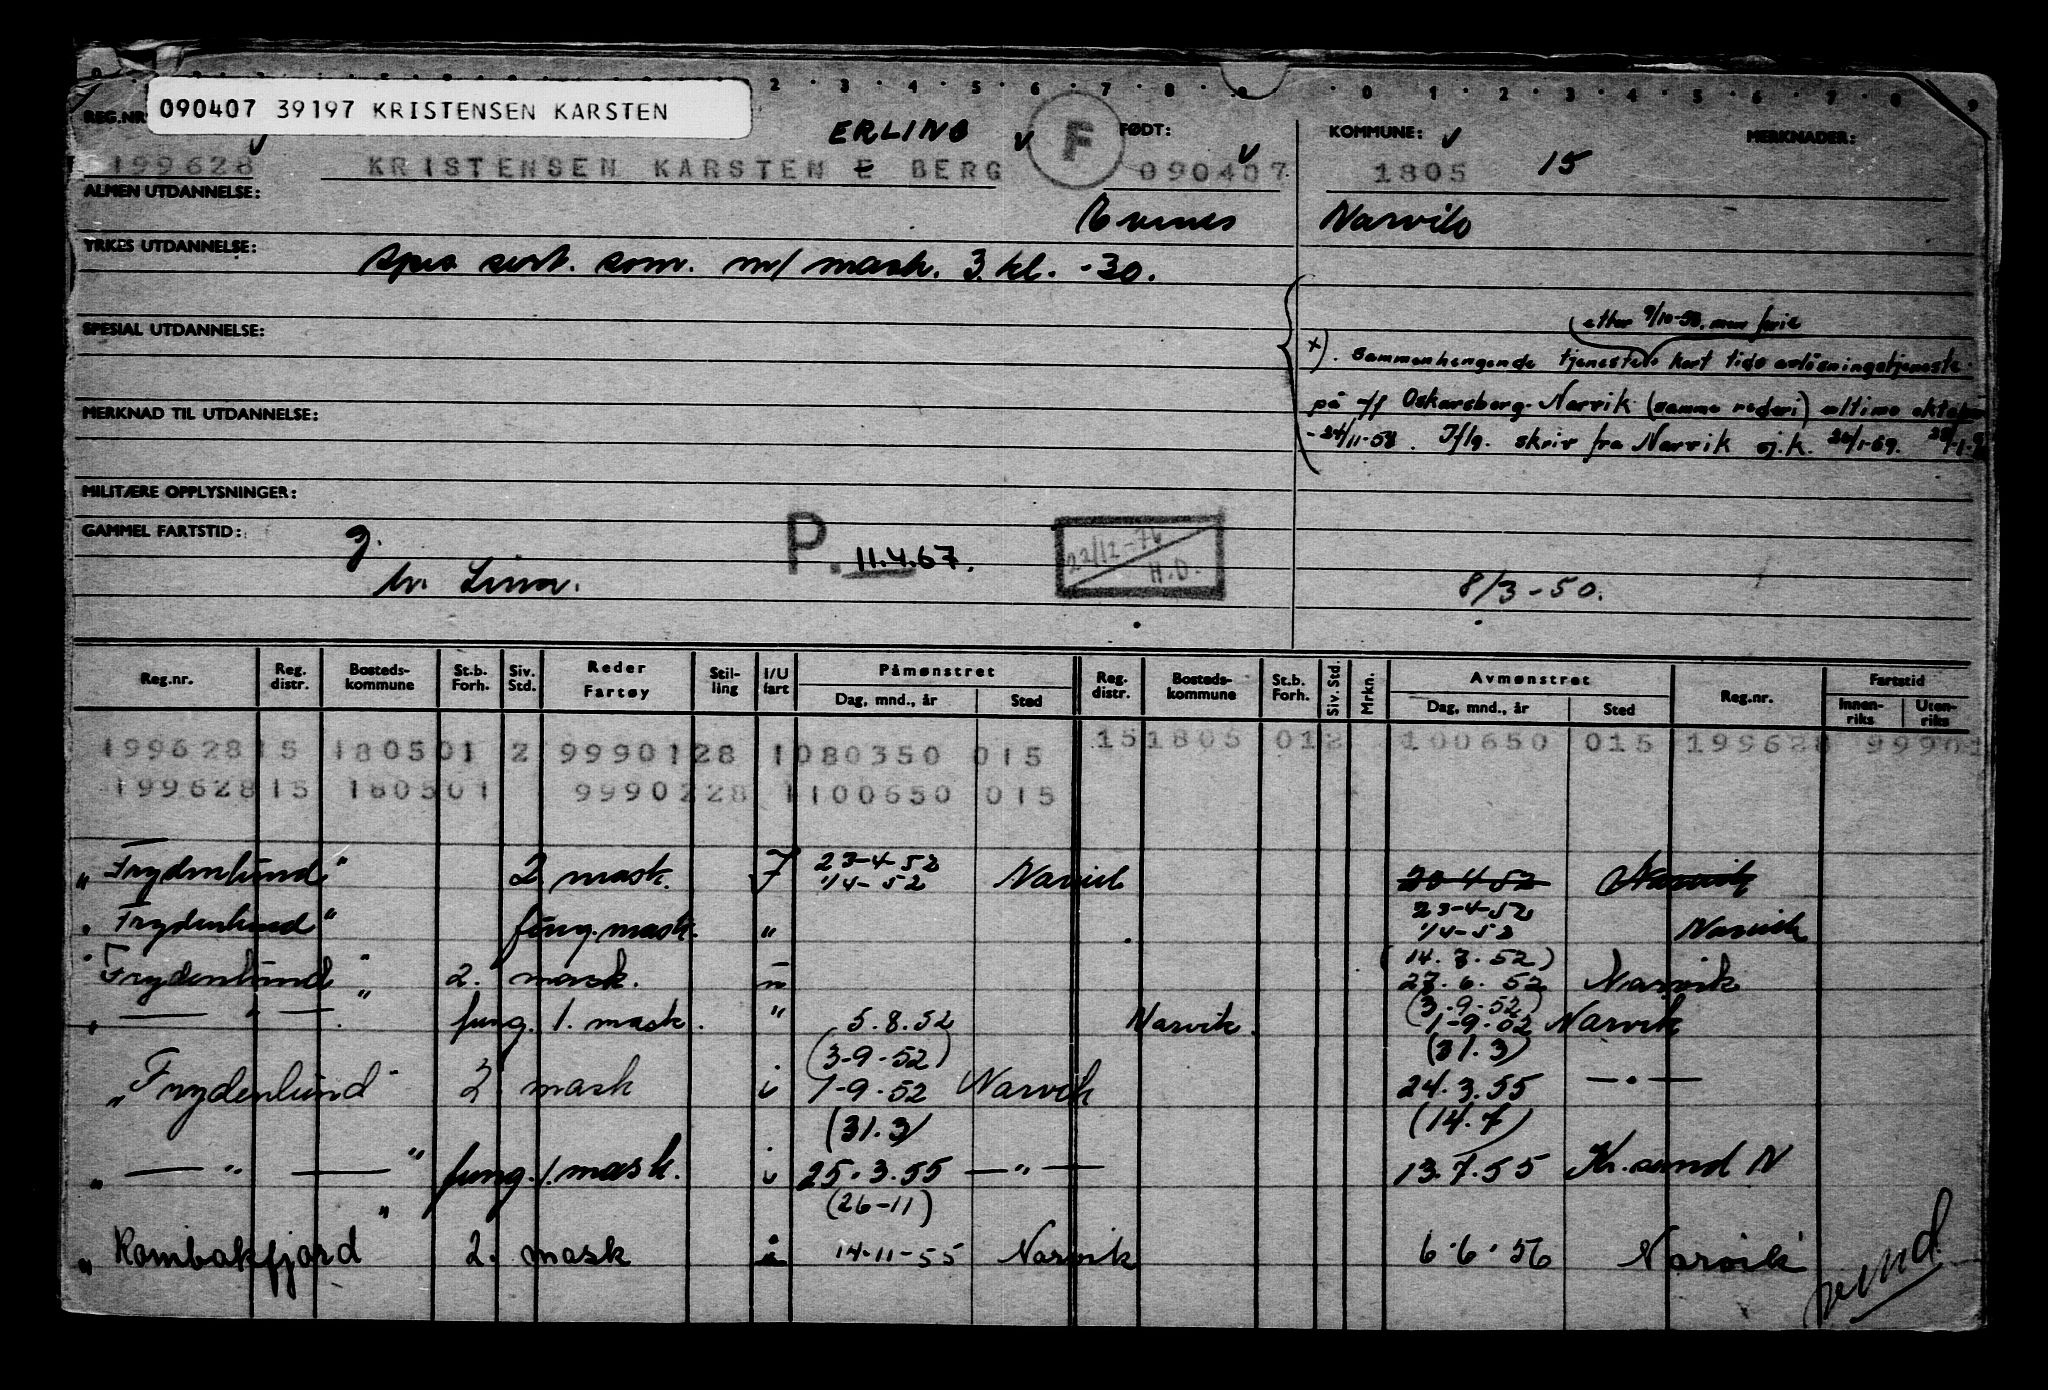 090407 39197 KRISTENSEN KARSTEN
REG.NR
ERLING
F
FØDT:
KOMMUNE:
MERKNADER:
199628
KRISTENSEN KARSTEN E BERG
090407
1805
15
ALMEN UTDANNELSE:
Evenes
Narvik
YRKES UTDANNELSE:
sert. som. m/ mask. 3. kl. -30.
SPESIAL UTDANNELSE:
etter 9/10-58, men
x). sammenhengende tjeneste kort tids avløsningstjeneste
MERKNAD TIL UTDANNELSE:
på Oskarsborg-Narvik (samme rederi) ultimo oktober
-24/11-58. Iflg. skriv fra Narvik sj.k.
MILITÆRE OPPLYSNINGER:
GAMMEL FARTSTID:
g.
P. 11.4.67.
22/12-76
H.O.
8/3-50.
Reg.nr. Reg. distr. Bosteds-kommune St.b. Forh. Siv. Std. Reder Fartøy Stil-ling I/U fart Påmønstret Dag, mnd., år Sted Reg. distr. Bosteds-kommune St.b. Forh. Siv. Std. Mrkn. Avmønstret Dag, mnd., år Sted Reg.nr. Fartstid Innen-riks Uten-riks
199628 15 1805 01 2 9990128 1 080350 015 15 1805 01 2 100650 015 199628 9990
199628 15 1805 01 9990228 1 100650 015
„Frydenlund" 2. mask. 23-4-52 1/4-52 Narvik 20-4-52 Narvik
„Frydenlund" fung. mask. " 23-4-52 1/4-52 Narvik
„Frydenlund" 2. mask. " (14.8.52) 27.6.52 Narvik
„ — " — " fung. 1. mask. " 5.8.52 Narvik. (3.9.52) 1-9-52 Narvik
(3-9-52) (31.3)
„Frydenlund" 2. mask i 1-9-52 Narvik 24.3.55 — " —
(31.3) (14.7)
„ — " — " fung. 1. mask. i 25.3.55 — " — 13.7.55 Kr.sund N
(26-11)
„Rombakfjord" 2. mask 14-11-55 Narvik 6.6.56 Narvik